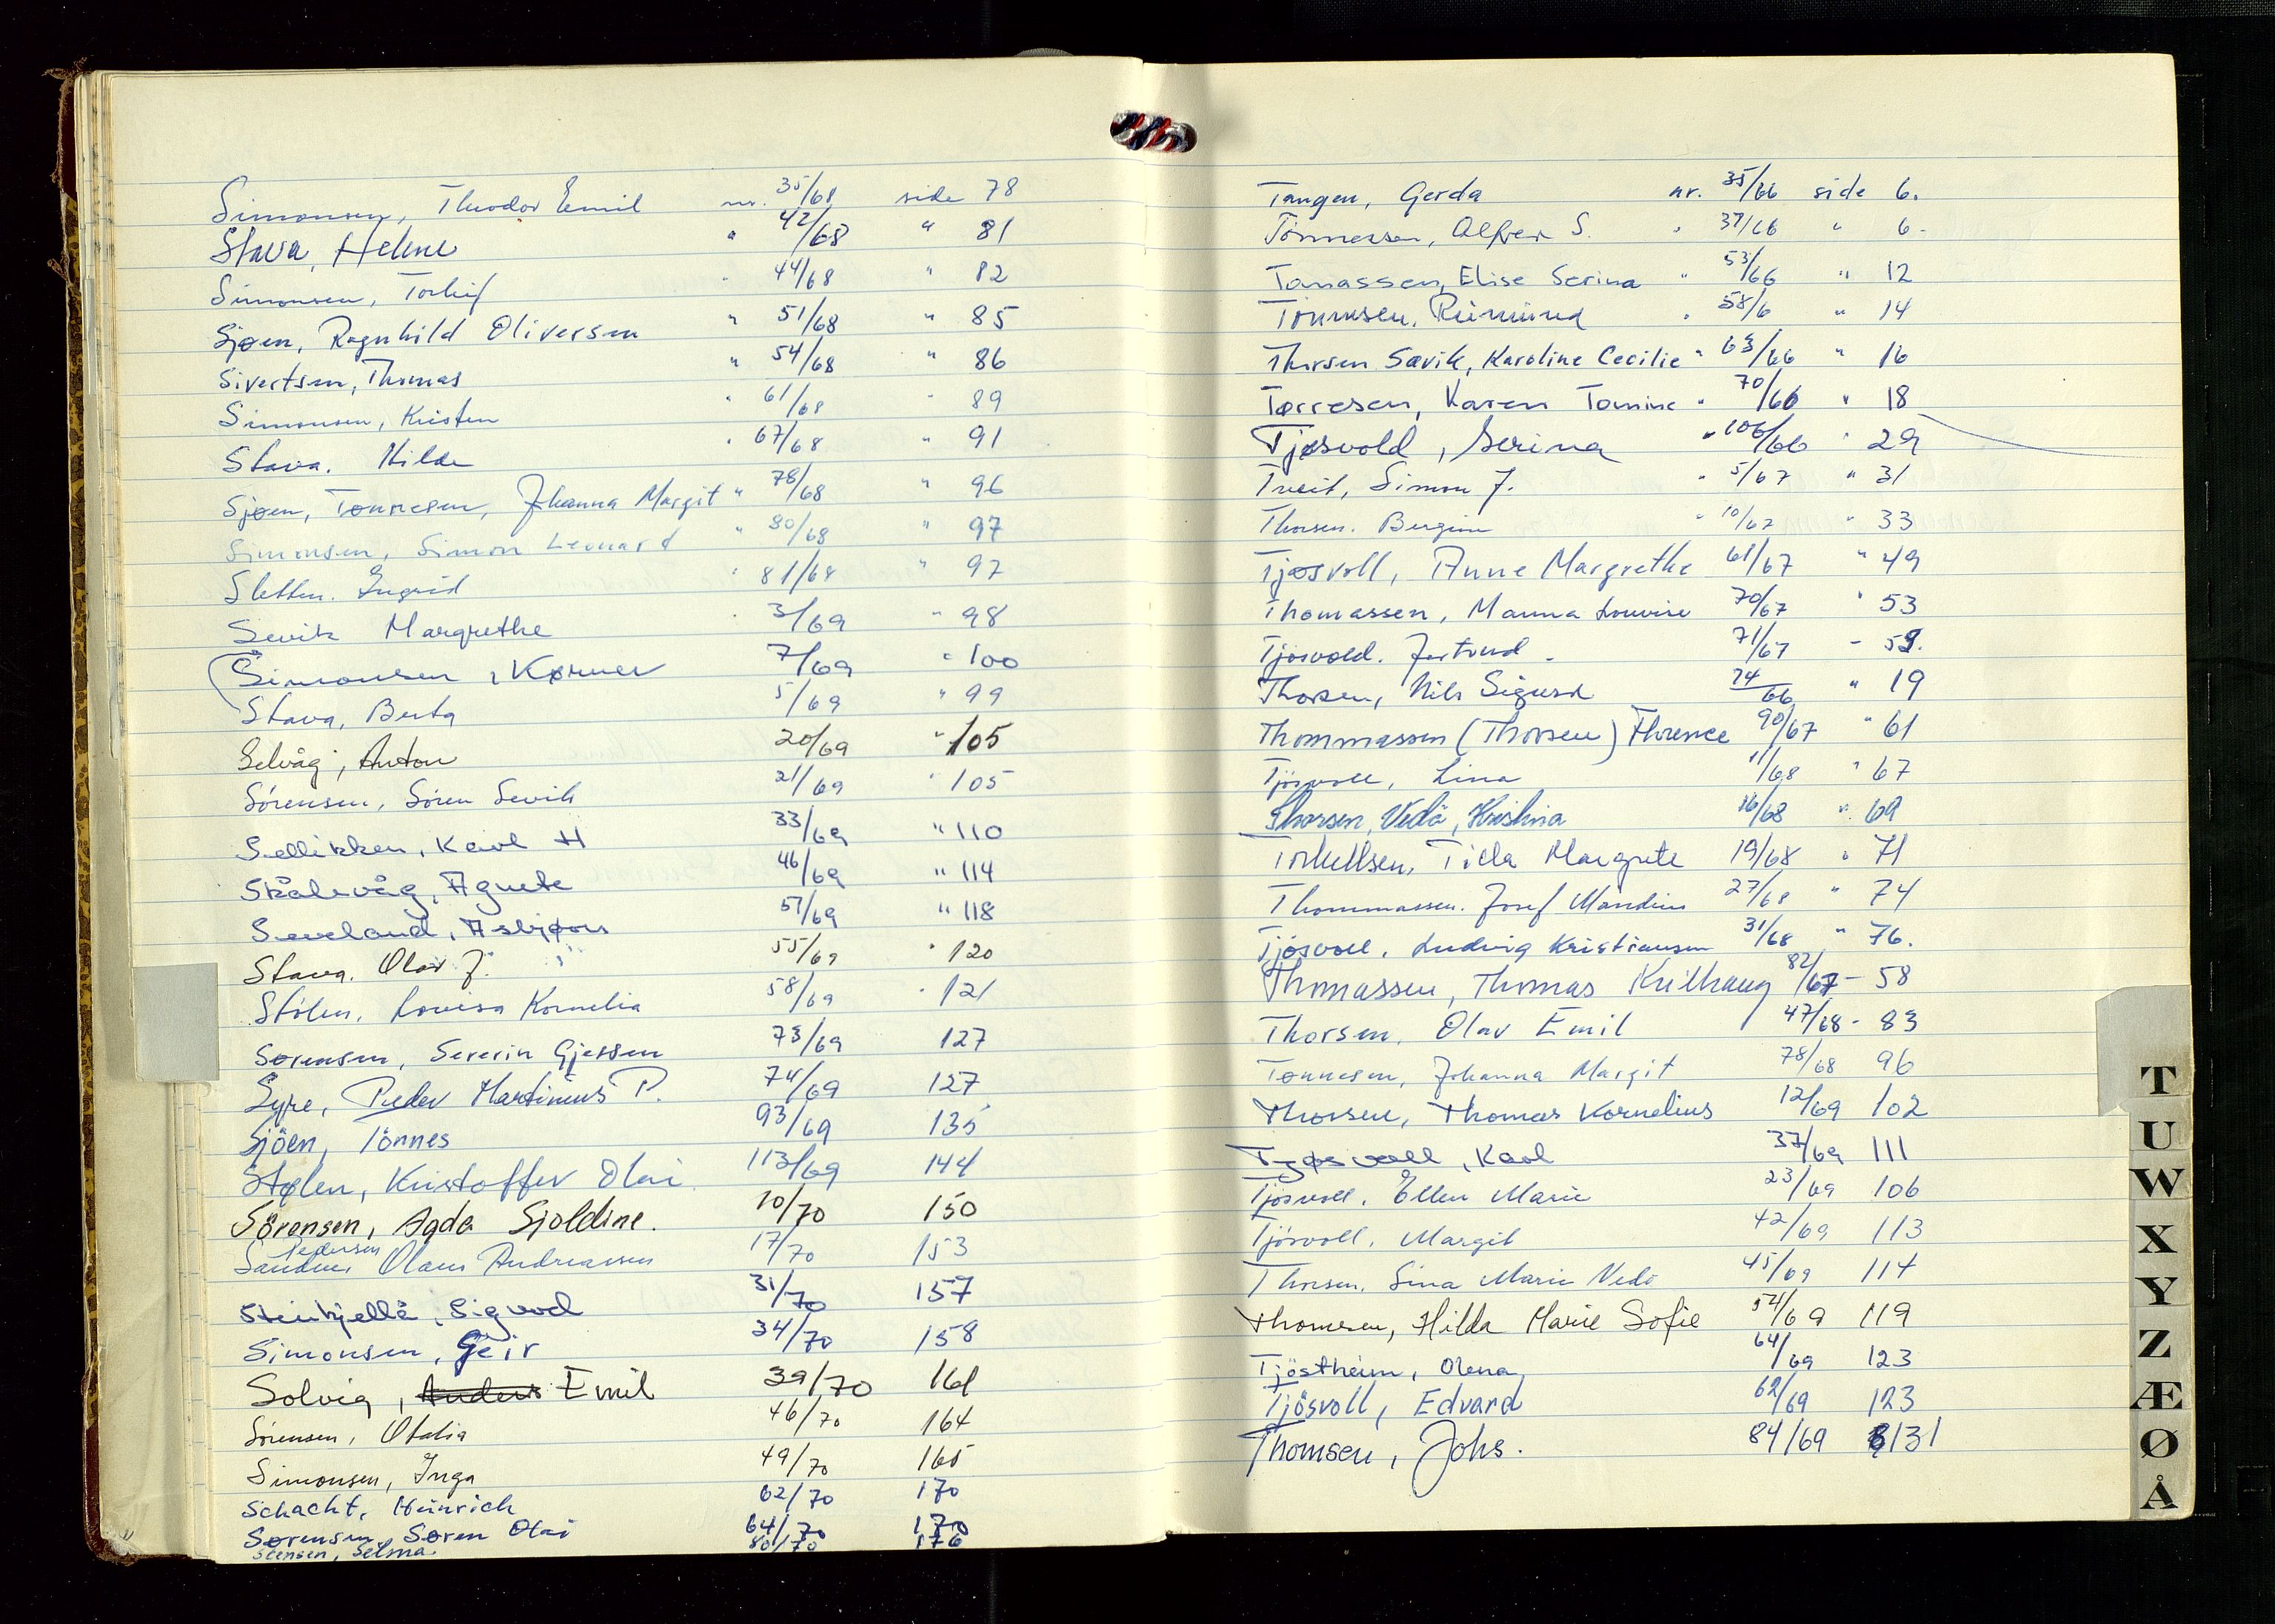 Simonsen, Theodor Emil nr. 35/68 side 78
Stava, Helene " 42/68 " 81
Simonsen, Torleif " 44/68 " 82
Sjøen, Ragnhild Oliversen " 51/68 " 85
Sivertsen, Thomas " 54/68 " 86
Simonsen, Kristen " 61/68 " 89
Stava. Hilda " 67/68 " 91
Sjøen, Tønnesen, Johanna Margit " 78/68 " 96
Simonsen, Simon Leonard " 80/68 " 97
Sletten. Ingrid " 81/68 " 97
Sevik Margrethe " 3/69 " 98
Simonsen, Korner 7/69 " 100
Stava, Berta 5/69 " 99
Selvåg, Anton 20/69 " 105
Sörensen, Sören Sevik 21/69 " 105
Sellikken, Karl H 33/69 " 110
Skålevåg, Agnete 46/69 " 114
Seveland, Asbjørn 51/69 " 118
Stava. Olav J. 55/69 " 120
Stölen. Lovisa Kornelia 58/69 " 121
Sørensen, Severin Gjessen 73/69 127
Syre, Peder Martinius P. 74/69 127
Sjöen, Tönnes 93/69 135
Stølen, Kristoffer Olai 113/69 144
Sörensen, Agda Sjoldine. 10/70 150
Pedersen
Sandnes Olaus Andreassen 17/70 153
Steinkjellå, Sigurd 31/70 157
Simonsen, Geir 34/70 158
Solvig, Anders Emil 39/70 161
Sörensen, Otalia 46/70 164
Simonsen, Inga 49/70 165
Schacht, Heinrich 62/70 170
Sørensen, Søren Olai 64/70 170
Stensen, Selma. 80/70 176
Tangen, Gerda nr. 35/66 side 6.
Tönnessen, Alfred S. " 37/66 " 6.
Tomassen, Elise Serina " 53/66 " 12
Tönnesen, Reimund " 58/6 " 14
Thorsen Sævik, Karoline Cecilie " 63/66 " 16
Tørresen, Karen Tomine " 70/66 " 18
Tjøsvold, Serina " 106/66 " 29
Tveit, Simon J. " 5/67 " 31
Thorsen. Bergine " 10/67 " 33
Tjøsvoll, Anne Margrethe 61/67 " 49
Thomassen, Manna Louvise 70/67 " 53
Tjösvold. Jertrud. 71/67 - 53.
Thorsen, Nils Sigurd 74/66 " 19
Thommassen (Thorsen) Florence 90/67 " 61
Tjösvoll, Lina 11/68 " 67
Thorsen, Vedö, Kristina 16/68 " 69
Torkellsen, Tilla Margrete 19/68 " 71
Thommassen. Josef Mandius 27/68 " 74
Tjösvoll. Ludvig Kristiansen 31/68 " 76.
Thomassen, Thomas Kvilhaug 82/67 - 58
Thorsen, Olav Emil 47/68 - 83
Tønnesen, Johanna Margit 78/68 96
Thorsen, Thomas Kornelius 12/69 102
Tjøsvoll, Karl 37/69 111
Tjösvoll. Ellen Marie 23/69 106
Tjösvoll. Margit 42/69 113
Thorsen. Lina Marie Vedö 45/69 114
Thomsen, Hilda Marie Sofie 54/69 119
Tjöstheim, Olena 64/69 123
Tjösvoll, Edvard 62/69 123
Thomsen, Johs. 84/69 131
T
U
W
X
Y
Z
Æ
Ø
Å